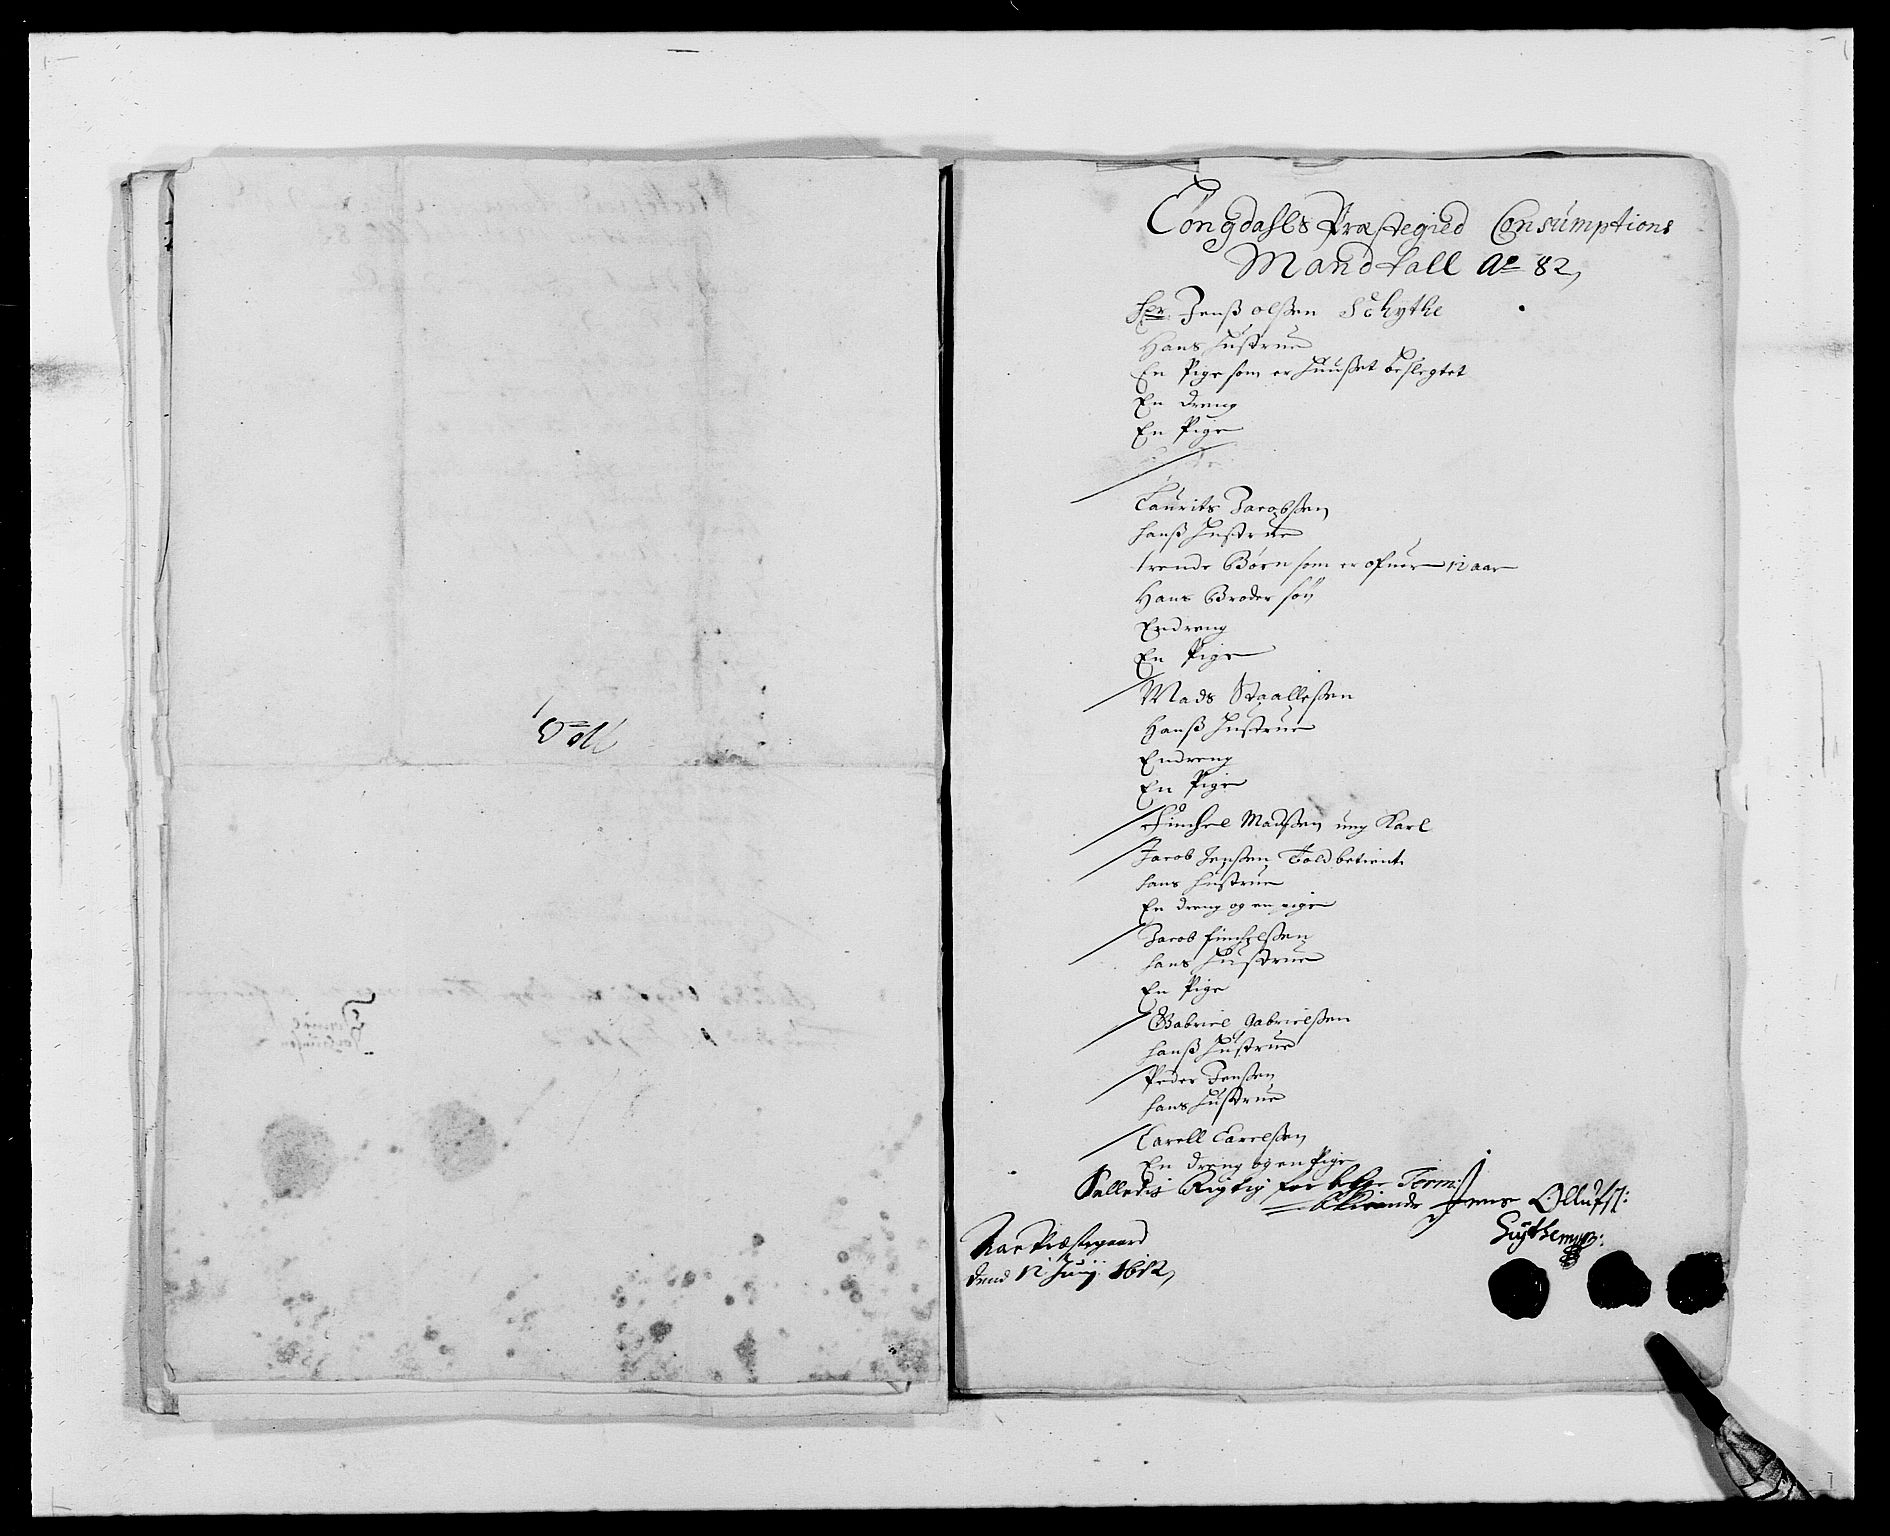 No 3
Congdahls Præstegield Consumptions
Mandtall Ao 82,
Her Jenß olßen Schythe
Hans Hustrue
En Pige som er Huußet beslegtet
En dreng
En Pige
Laurits Jacobßen
hanß Hustrue
trende Børn som er ofuer 12 aar
Hans Broder søn
En dreng
En Pige
Mads Staalleßen
Hanß Hustrue
En dreng
En Pige
Finchel Madßen ung Karl
Jacob Jenßen Toldbetient
hans Hustrue
En dreng og en pige
Jacob finchelßen
hans Hustrue
En Pige
Gabriel Gabrielßen
hanß Hustrue
Peder Jenßen
hans Hustrue
Carell Carelßen
En dreng og en Pige
Saaledis Rigtig for Termi
Jens Ollufs:
Schythe mppr:
Præstegaard
dend 12 Junij 1682,